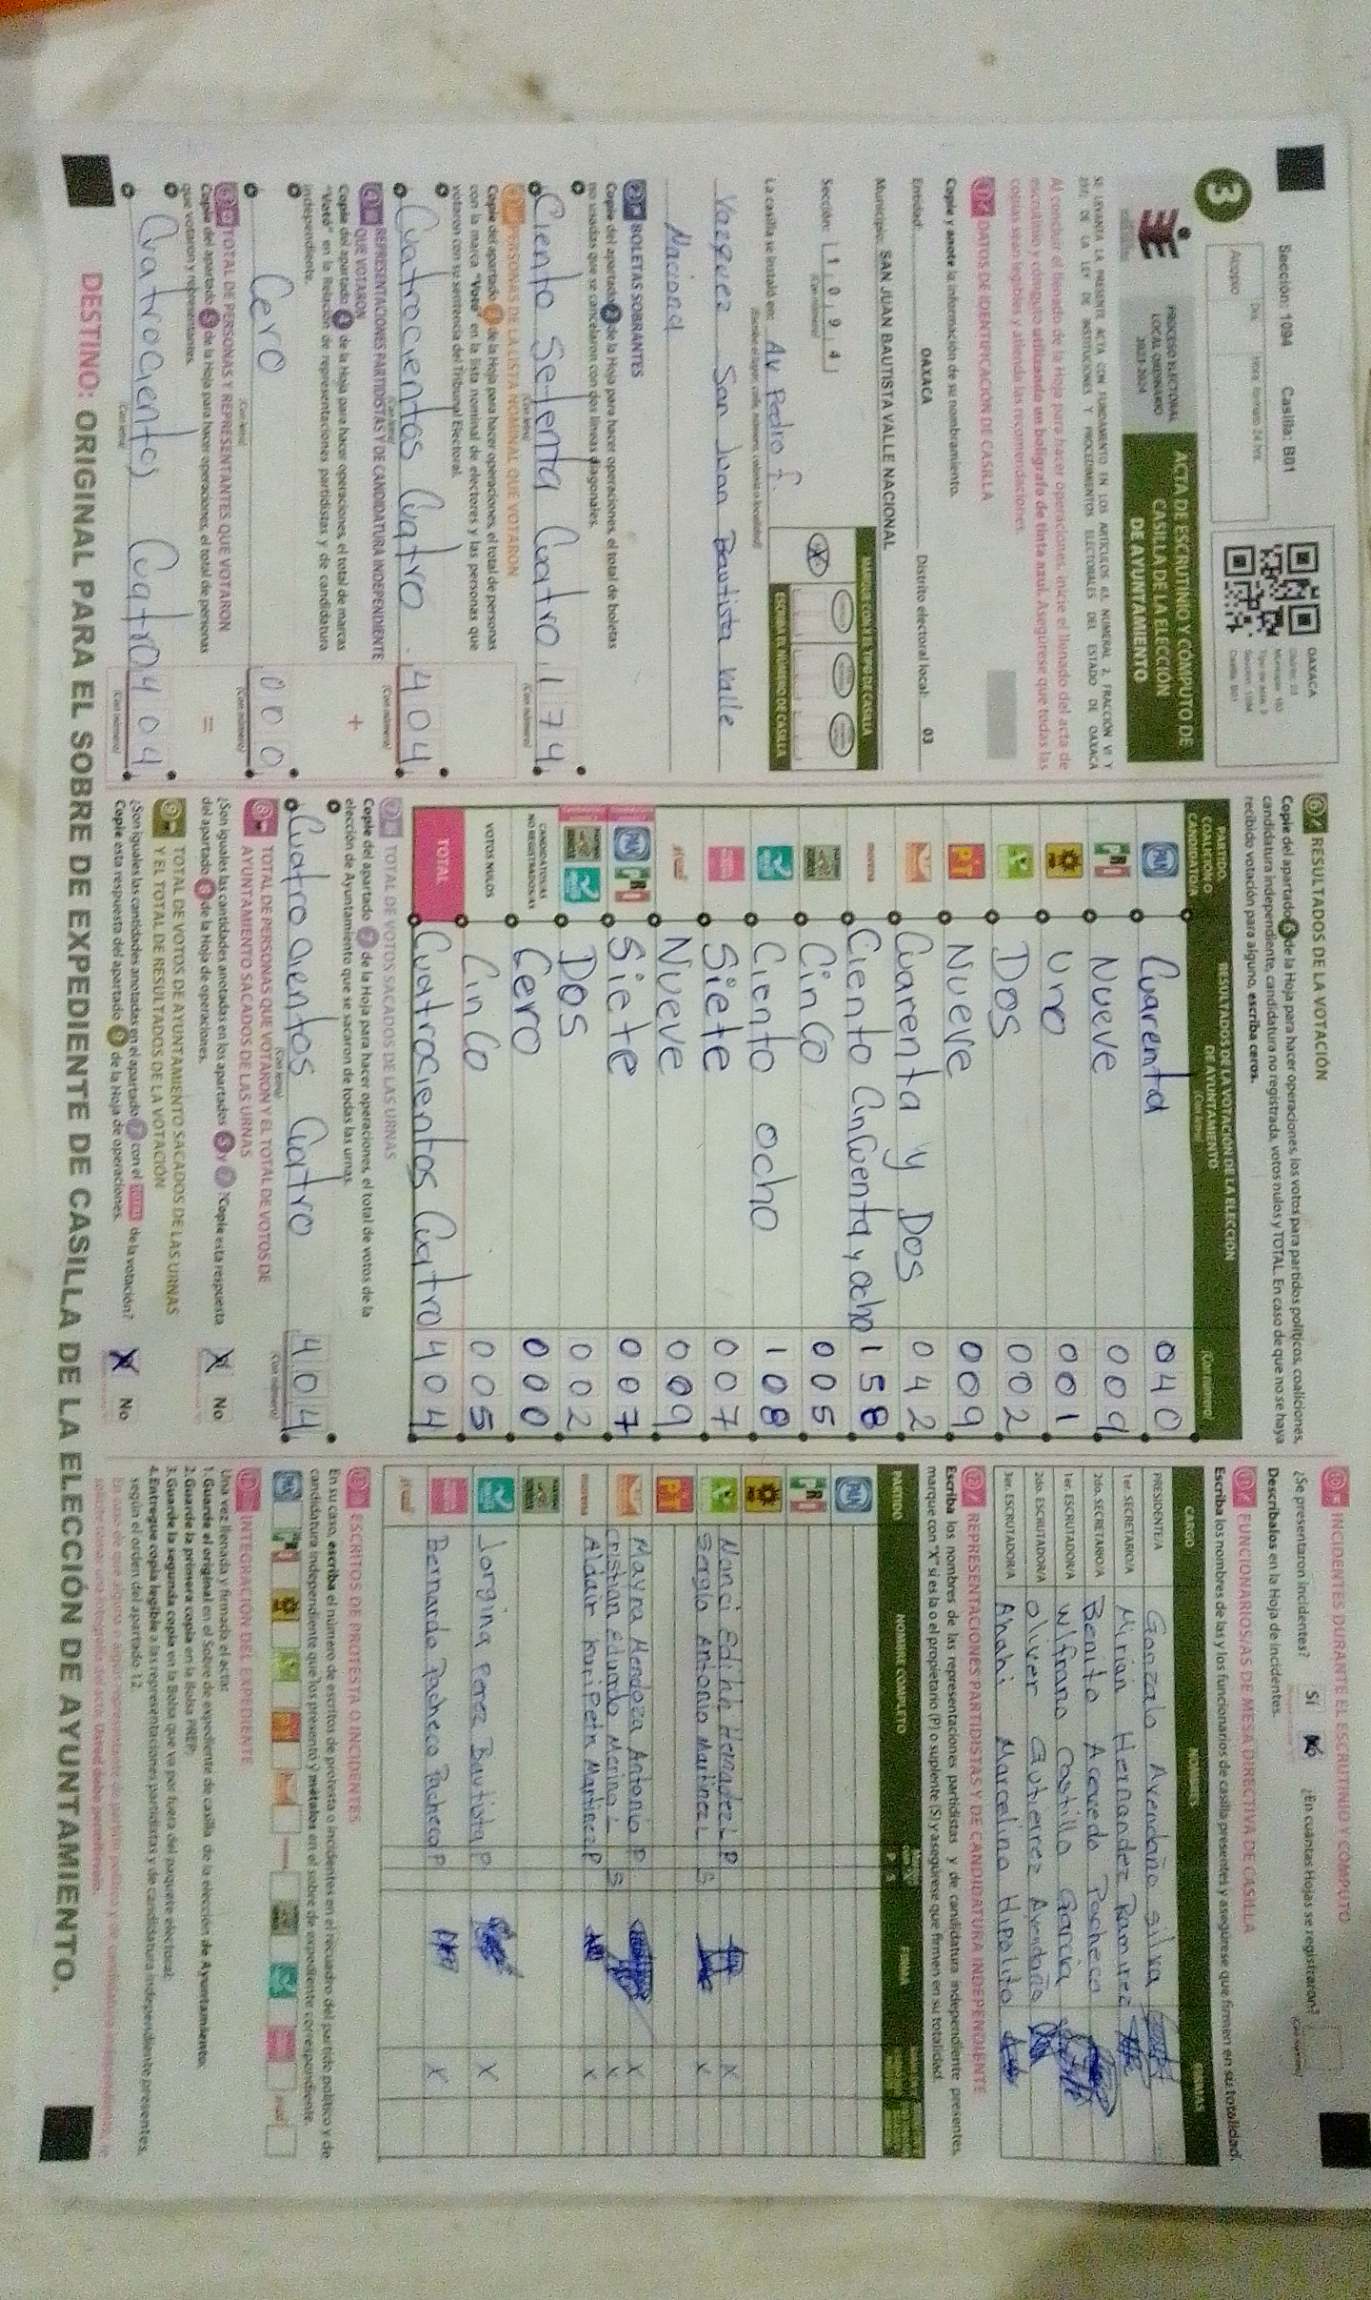 Sección: 1094 Casilla: B01
OAXACA
3
Acopio
PROCESO ELECTORAL
LOCAL ORDINARIO
2023-2024
ACTA DE ESCRUTINIO Y CÓMPUTO DE
CASILLA DE LA ELECCIÓN
DE AYUNTAMIENTO
SE LEVANTA LA PRESENTE ACTA CON FUNDAMENTO EN LOS ARTÍCULOS 63, NUMERAL 2, FRACCIÓN VI Y
DE LA LEY DE INSTITUCIONES Y PROCEDIMIENTOS ELECTORALES DEL ESTADO DE OAXACA
Al concluir el llenado de la Hoja para hacer operaciones, inicie el llenado del acta de
escrutinio y cómputo utilizando un bolígrafo de tinta azul. Asegúrese que todas las
copias sean legibles y atienda las recomendaciones.
1 DATOS DE IDENTIFICACIÓN DE CASILLA
Copie y anote la información de su nombramiento.
Entidad: OAXACA Distrito electoral local: 03
Municipio: SAN JUAN BAUTISTA VALLE NACIONAL
Sección: 1 0 9 4
(Con número)
MARQUE CON X EL TIPO DE CASILLA
ESCRIBA EL NÚMERO DE CASILLA
La casilla se instaló en: Av Pedro F.
(Escriba el lugar, calle, número, colonia o localidad)
Vazquez San Juan Bautista Valle
Naciona
2 BOLETAS SOBRANTES
Copie del apartado 2 de la Hoja para hacer operaciones, el total de boletas
no usadas que se cancelaron con dos líneas diagonales.
Ciento Setenta Cuatro 174
(Con letra) (Con número)
3 PERSONAS DE LA LISTA NOMINAL QUE VOTARON
Copie del apartado 3 de la Hoja para hacer operaciones, el total de personas
con la marca "Votó" en la lista nominal de electores y las personas que
votaron con su sentencia del Tribunal Electoral.
Cuatrocientos Cuatro. 404
(Con letra) (Con número)
4 REPRESENTACIONES PARTIDISTAS Y DE CANDIDATURA INDEPENDIENTE
QUE VOTARON
Copie del apartado 4 de la Hoja para hacer operaciones, el total de marcas
"Votó" en la Relación de representaciones partidistas y de candidatura
independiente.
+
Cero 000
(Con letra) (Con número)
5 TOTAL DE PERSONAS Y REPRESENTANTES QUE VOTARON
Copie del apartado 5 de la Hoja para hacer operaciones, el total de personas
que votaron y representantes.
=
Cuatrocientos Cuatro 404
(Con letra) (Con número)
6 RESULTADOS DE LA VOTACIÓN
Copie del apartado 6 de la Hoja para hacer operaciones, los votos para partidos políticos, coaliciones,
candidatura independiente, candidatura no registrada, votos nulos y TOTAL. En caso de que no se haya
recibido votación para alguno, escriba ceros.
PARTIDO, COALICIÓN O CANDIDATO/A
RESULTADOS DE LA VOTACIÓN DE LA ELECCIÓN
DE AYUNTAMIENTO
(Con letra) (Con número)
PAN Cuarenta 040
PRI Nueve 009
PRD Uno 001
Dos 002
PT Nueve 009
Cuarenta y Dos 042
morena Ciento Cincuenta y ocho 158
Cinco 005
Ciento ocho 108
Siete 007
Nueve 009
PAN PRI Siete 007
Dos 002
CANDIDATOS/AS
NO REGISTRADOS/AS Cero 000
VOTOS NULOS Cinco 005
TOTAL Cuatrocientos Cuatro 404
7 TOTAL DE VOTOS SACADOS DE LAS URNAS
Copie del apartado 7 de la Hoja para hacer operaciones, el total de votos de la
elección de Ayuntamiento que se sacaron de todas las urnas.
Cuatrocientos Cuatro 404
(Con letra) (Con número)
8 TOTAL DE PERSONAS QUE VOTARON Y EL TOTAL DE VOTOS DE
AYUNTAMIENTO SACADOS DE LAS URNAS
¿Son iguales las cantidades anotadas en los apartados 5 y 7? Copie esta respuesta
del apartado 8 de la Hoja de operaciones.
X No
9 TOTAL DE VOTOS DE AYUNTAMIENTO SACADOS DE LAS URNAS
Y EL TOTAL DE RESULTADOS DE LA VOTACIÓN
¿Son iguales las cantidades anotadas en el apartado 7 con el TOTAL de la votación?
Copie esta respuesta del apartado 9 de la Hoja de operaciones.
X No
10 INCIDENTES DURANTE EL ESCRUTINIO Y CÓMPUTO
¿Se presentaron incidentes? Sí ¿En cuántas Hojas se registraron?
(Con número)
Descríbalos en la Hoja de incidentes.
11 FUNCIONARIOS/AS DE MESA DIRECTIVA DE CASILLA
Escriba los nombres de las y los funcionarios de casilla presentes y asegúrese que firmen en su totalidad.
CARGO NOMBRES FIRMAS
PRESIDENTE/A Gonzalo Avendaño silva
1er. SECRETARIO/A Mirian Hernandez Ramirez
2do. SECRETARIO/A Benito Acevedo Pacheco
1er. ESCRUTADOR/A Wifrano Castillo Garcia
2do. ESCRUTADOR/A Oliver Gutierrez Avendaño
3er. ESCRUTADOR/A Anahi Marcelino Hipolito
12 REPRESENTACIONES PARTIDISTAS Y DE CANDIDATURA INDEPENDIENTE
Escriba los nombres de las representaciones partidistas y de candidatura independiente presentes,
marque con "X" si es la o el propietario (P) o suplente (S) y asegúrese que firmen en su totalidad.
PARTIDO NOMBRE COMPLETO P S FIRMA
PAN
PRI
PRD
Nanci Edihh HernadezL P X
Sergio Antonio MartinezL S X
PT
Mayra Mendoza Antonio P X
Cristian Eduardo Merino L S X
morena Aldair YuriPetn Martinez P X
Jorgina Perez Bautista P X
Bernardo Pacheco Pacheco P X
13 ESCRITOS DE PROTESTA O INCIDENTES
En su caso, escriba el número de escritos de protesta o incidentes en el recuadro del partido político y de
candidatura independiente que los presentó y métalos en el sobre de expediente correspondiente.
INTEGRACIÓN DEL EXPEDIENTE
Una vez llenada y firmada el acta:
1. Guarde el original en el Sobre de expediente de casilla de la elección de Ayuntamiento.
2. Guarde la primera copia en la Bolsa PREP.
3. Guarde la segunda copia en la Bolsa que va por fuera del paquete electoral.
4. Entregue copia legible a las representaciones partidistas y de candidatura independiente presentes,
según el orden del apartado 12.
DESTINO: ORIGINAL PARA EL SOBRE DE EXPEDIENTE DE CASILLA DE LA ELECCIÓN DE AYUNTAMIENTO.